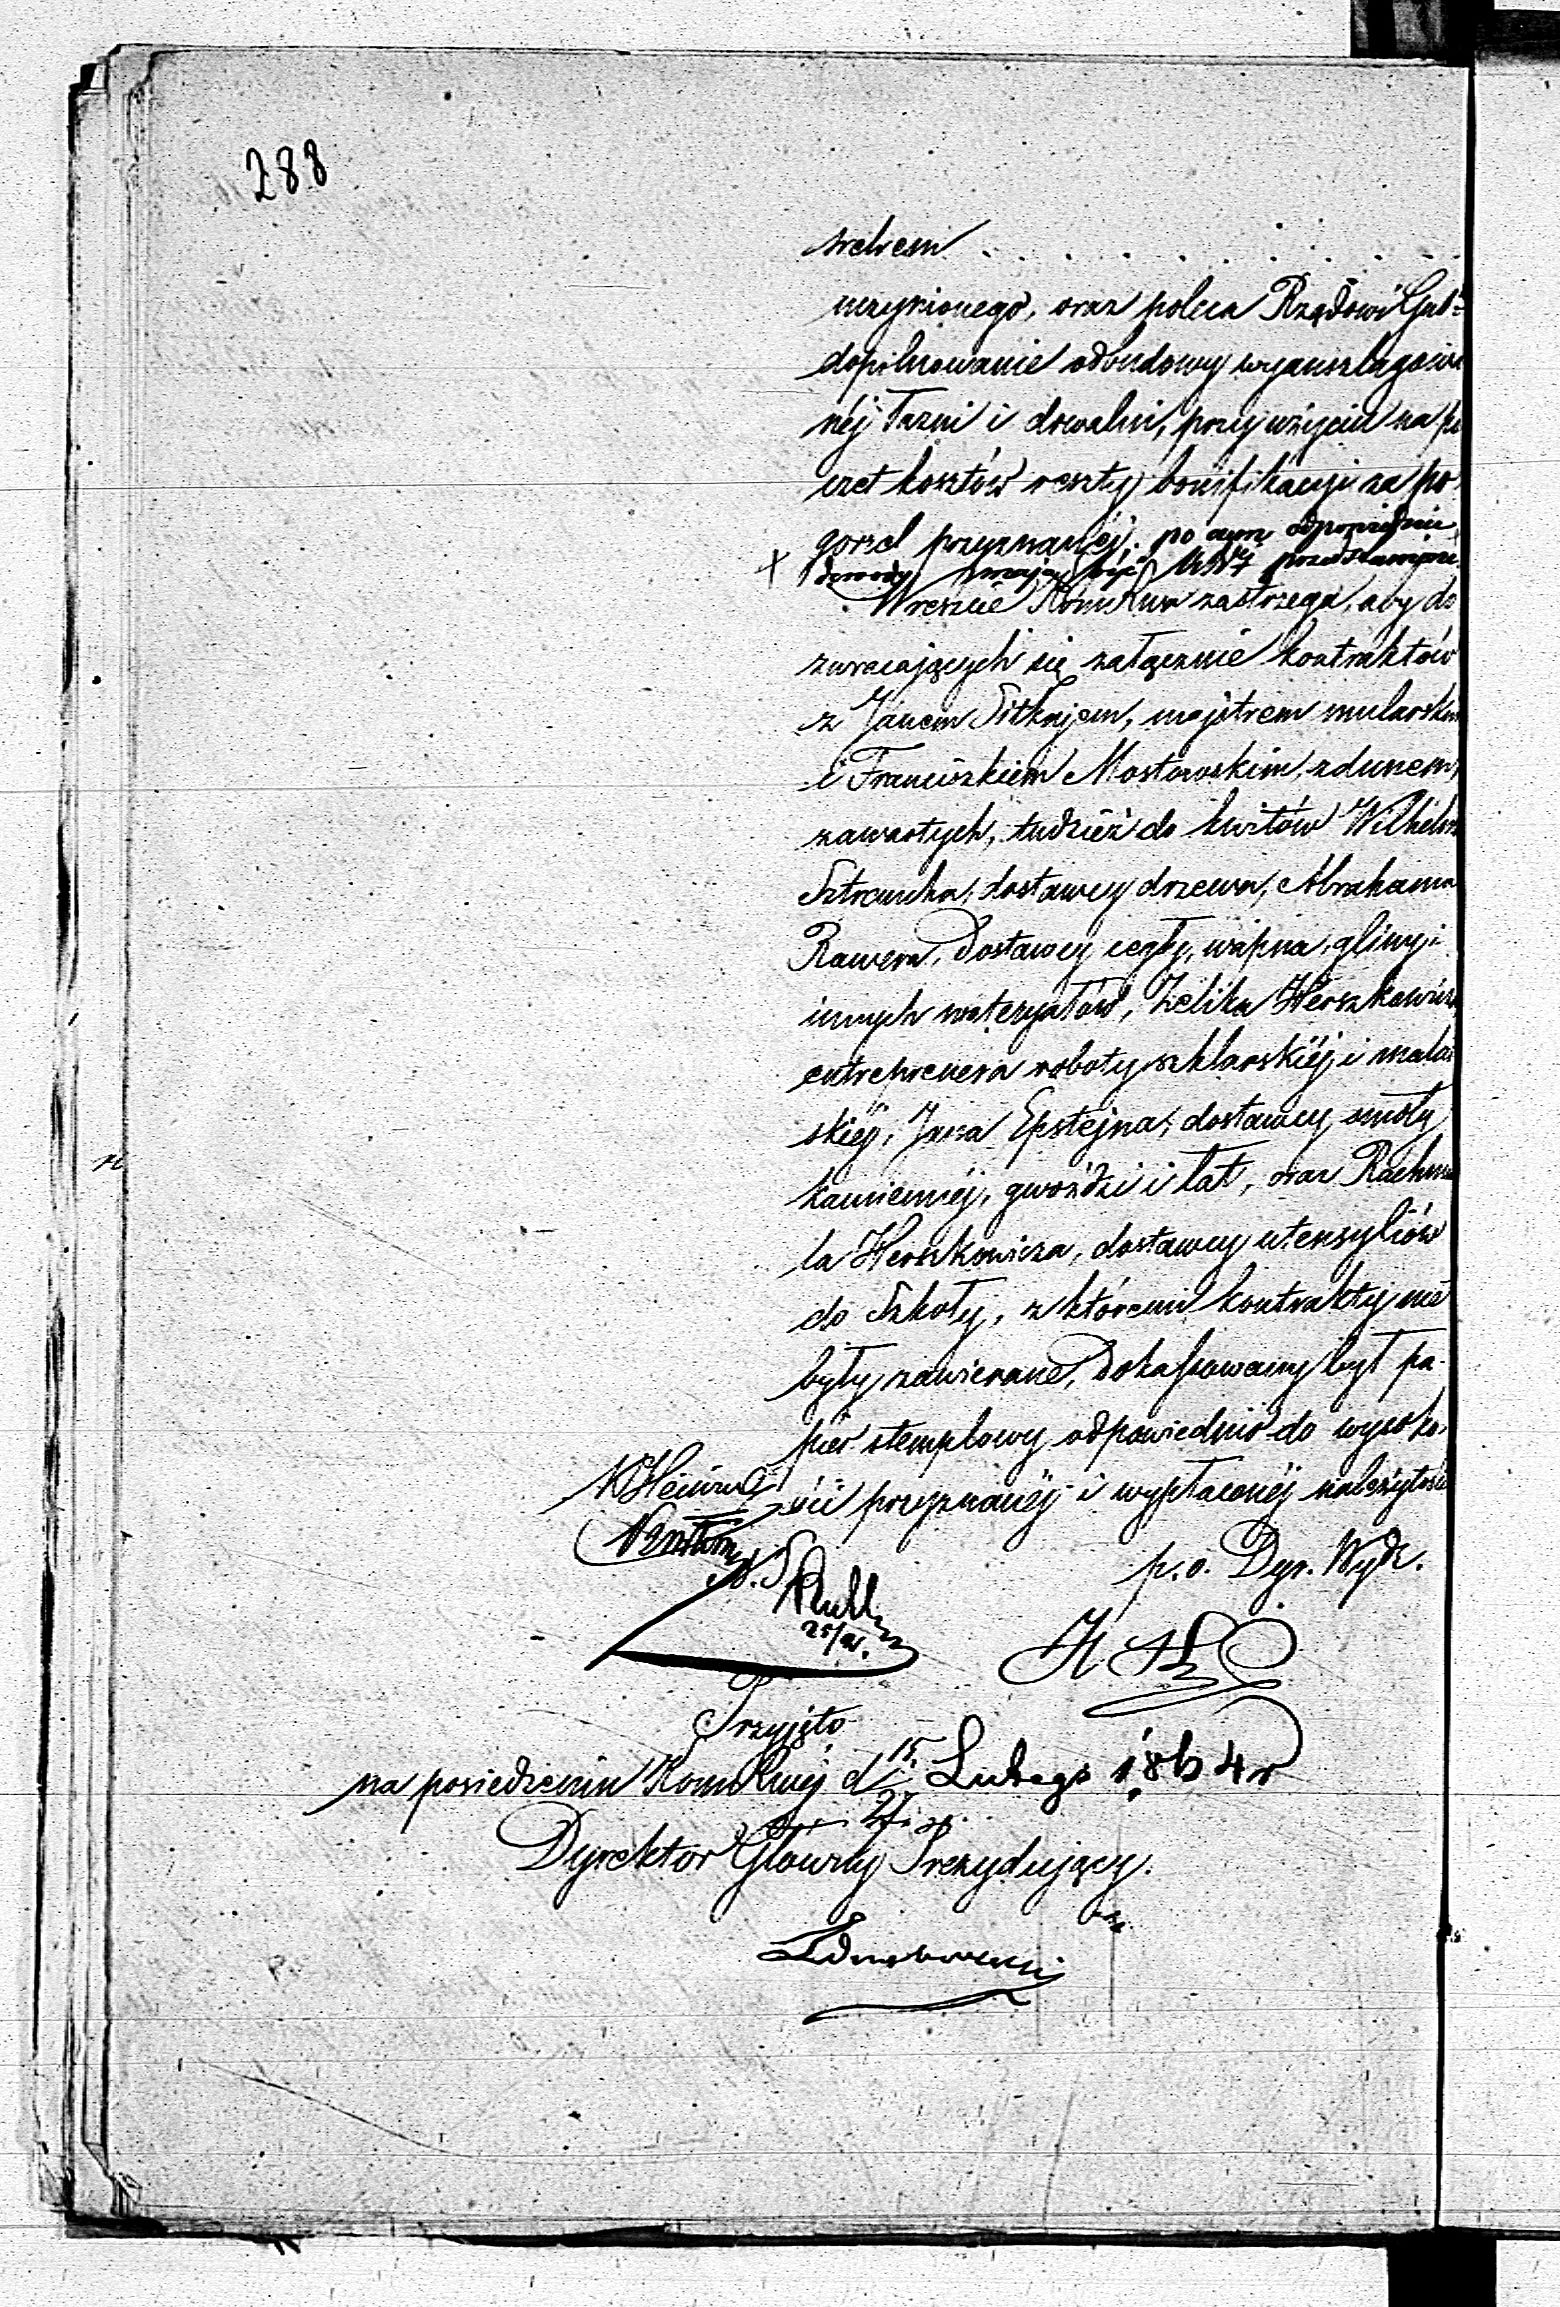 288
srebrem . . . . . . . . .
uczynionego, oraz poleca Rządowi Gub:
dopilnowanie odbudowy wyanszlagowa
néj Łazni i drwalni, przy użyciu na po
czet kosztów reszty bonifikacyi za po
gorzel przyznanéj. po czem odpowiednie
+ dowody mają być przedstawione.
Wreszcie Kom Rzwa zastrzega, aby do
zwracających się załącznie kontraktów
z Janem Sitkajem, majstrem mularskim
i Franciszkiem Mostowskim, zdunem,
zawartych, tudzież do kwitów Wilhelma
Sztraucha, dostawcy drzewa, Abrahama
Rawera, dostawcy cegły, wapna, gliny i
innych materyałów, Zelika Herszkowicza
entreprenera roboty szklarskiéj i malar
skiéj, Jana Epstejna, dostawcy smoły
kamiennéj, gwoździ i łat, oraz Rachmi
la Herszkowicza, dostawcy utensyliów
do Szkoły, z któremi kontrakty nie
były zawierane, dokassowany był pa-
pier stemplowy odpowiednio do wyso ko-
ści przyznanéj i wypłaconéj należytości
p. o. Dyr. Wydz.
Przyjęto
na posiedzeniu Kom Rzwéj d 15/27 Lutego 1864 r
Dyrektor Główny Prezydujący.